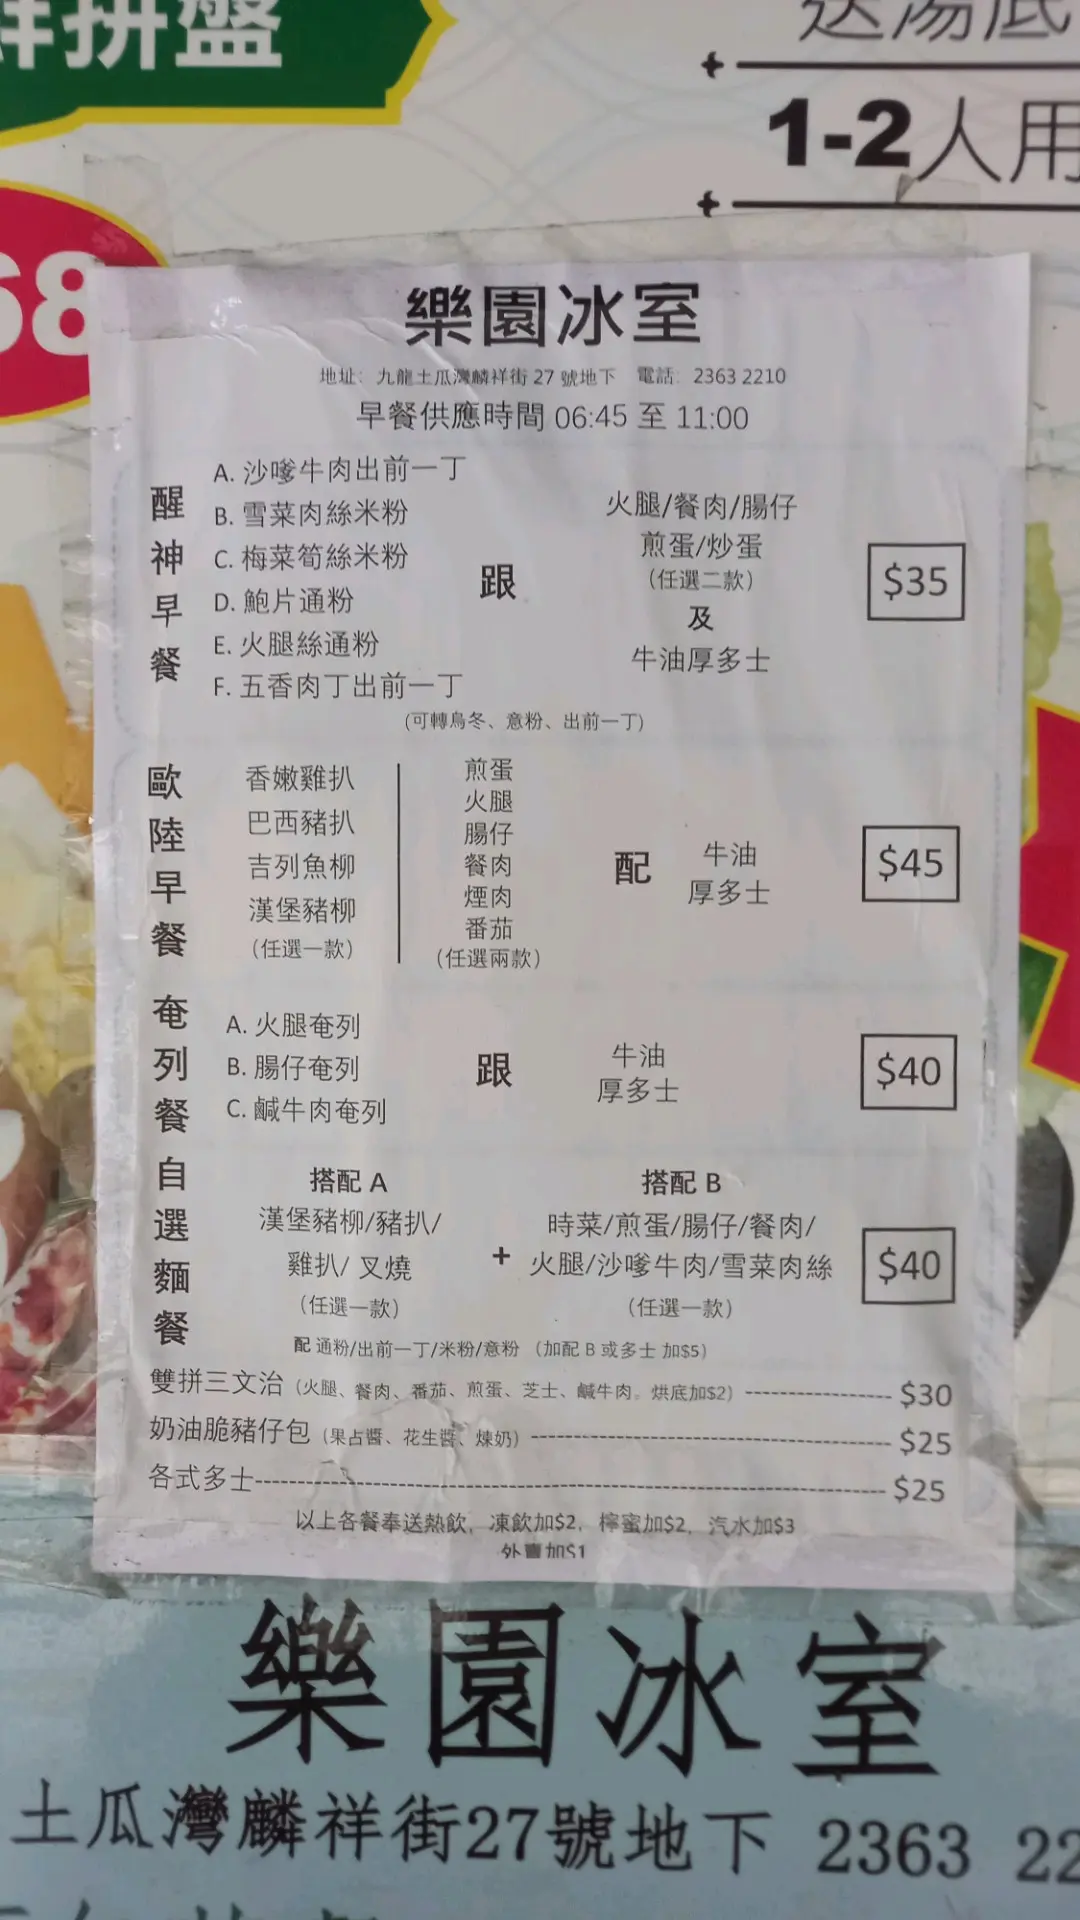 鮮拼盤
送湯底
1-2人用
68
樂園冰室
地址: 九龍土瓜灣麟祥街 27 號地下 電話: 2363 2210
早餐供應時間 06:45 至 11:00
醒神早餐
A. 沙嗲牛肉出前一丁
B. 雪菜肉絲米粉
C. 梅菜筍絲米粉
D. 鮑片通粉
E. 火腿絲通粉
F. 五香肉丁出前一丁
跟
火腿/餐肉/腸仔
煎蛋/炒蛋
(任選二款)
及
牛油厚多士
$35
(可轉烏冬、意粉、出前一丁)
歐陸早餐
香嫩雞扒
巴西豬扒
吉列魚柳
漢堡豬柳
(任選一款)
煎蛋
火腿
腸仔
餐肉
煙肉
番茄
(任選兩款)
配
牛油
厚多士
$45
奄列餐
A. 火腿奄列
B. 腸仔奄列
C. 鹹牛肉奄列
跟
牛油
厚多士
$40
自選麵餐
搭配 A
漢堡豬柳/豬扒/
雞扒/ 叉燒
(任選一款)
+
搭配 B
時菜/煎蛋/腸仔/餐肉/
火腿/沙嗲牛肉/雪菜肉絲
(任選一款)
$40
配 通粉/出前一丁/米粉/意粉 (加配 B 或多士 加$5)
雙拼三文治 (火腿、餐肉、番茄、煎蛋、芝士、鹹牛肉。烘底加$2) $30
奶油脆豬仔包 (果占醬、花生醬、煉奶) $25
各式多士 $25
以上各餐奉送熱飲, 凍飲加$2, 檸蜜加$2, 汽水加$3
外賣加$1
樂園冰室
土瓜灣麟祥街27號地下 2363 22